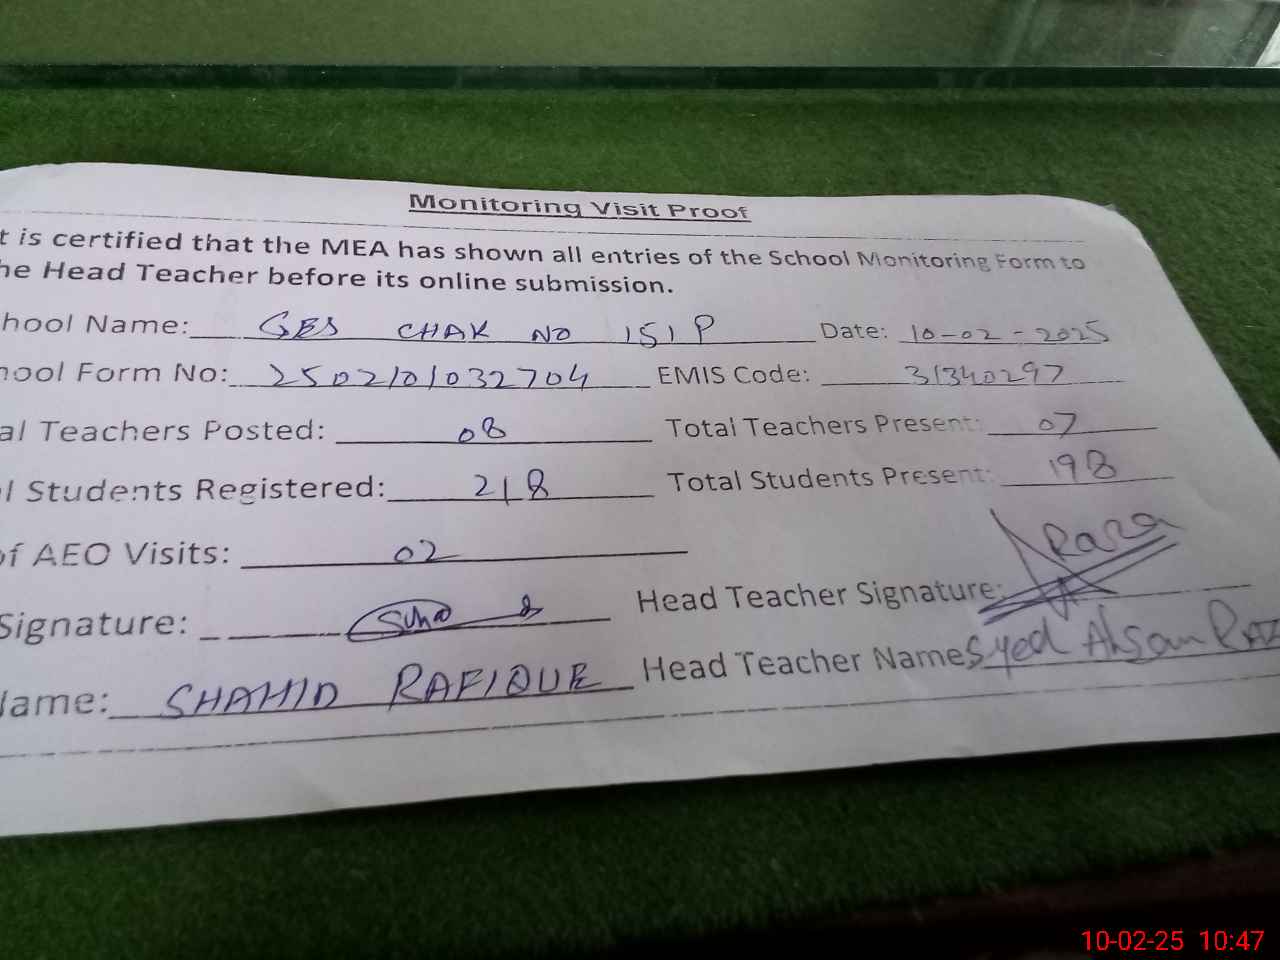 Monitoring Visit Proof
t is certified that the MEA has shown all entries of the School Monitoring Form to
he Head Teacher before its online submission.
hool Name: GES CHAK NO 151 P Date: 10-02-2025
hool Form No: 2502101032704 EMIS Code: 31340297
al Teachers Posted: 08 Total Teachers Present: 07
l Students Registered: 218 Total Students Present: 198
of AEO Visits: 02
Signature: Head Teacher Signature: Raza
Name: SHAHID RAFIQUE Head Teacher Name Syed Ahsan RAZ
10-02-25 10:47